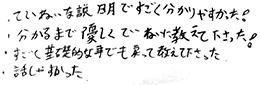 ・ていねいな説明ですごく分かりやすかった！
・分かるまで優しくていねいに教えて下さった！
・すごく基礎的な事でも戻って教えて下さった
・話しやすかった